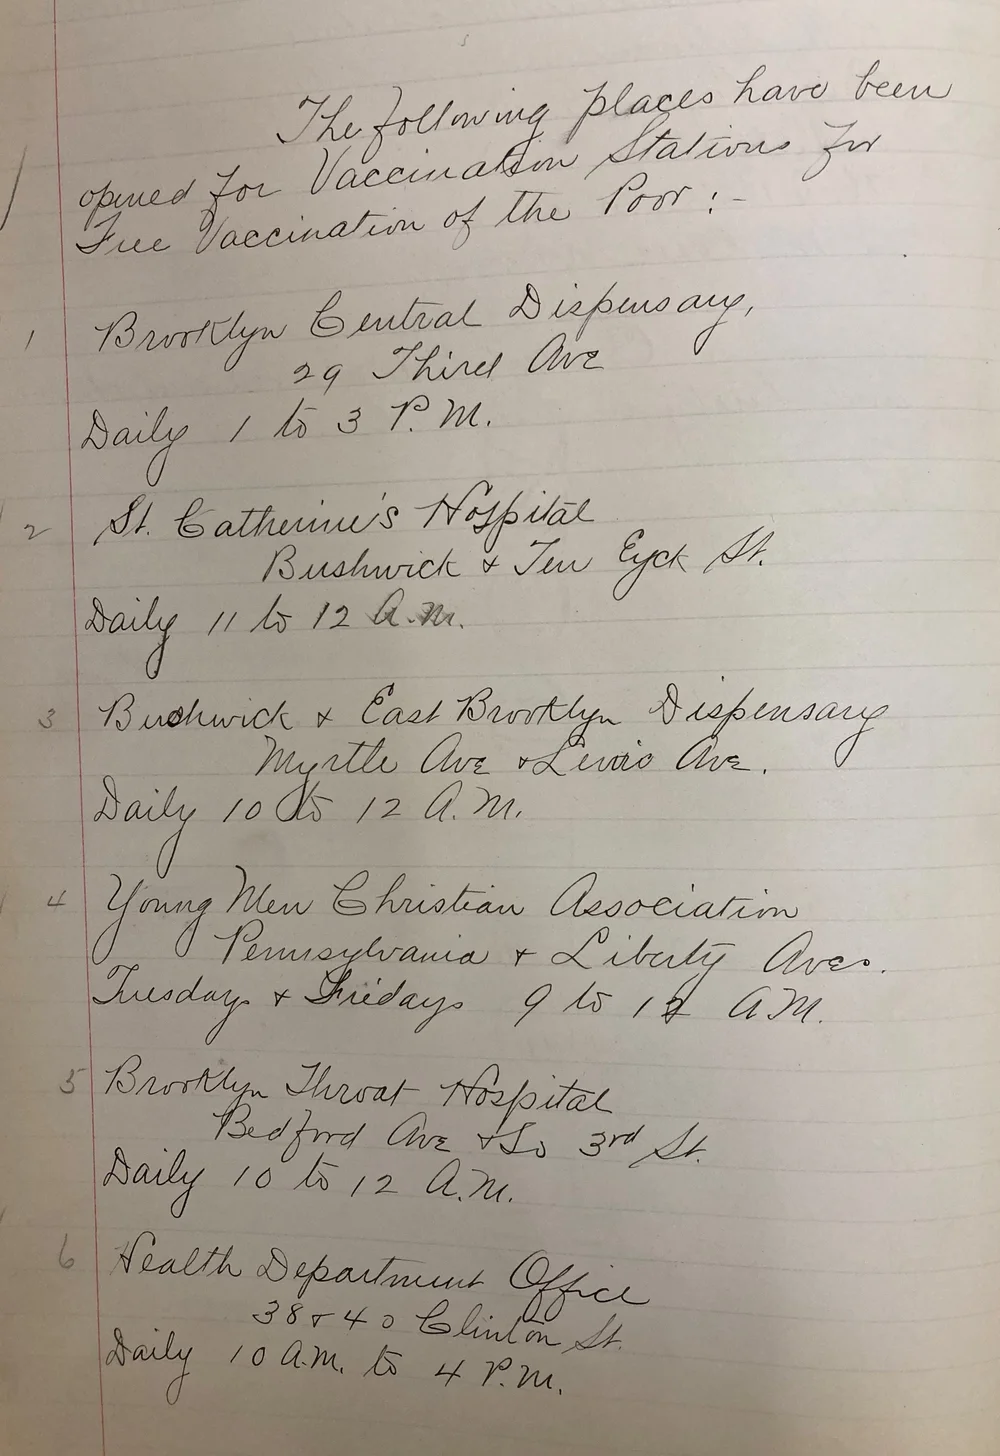 The following places have been
opened for Vaccination Stations for
Free Vaccination of the Poor :-
1 Brooklyn Central Dispensary,
29 Third Ave
Daily 1 to 3 P.M.
2 St. Catherine's Hospital
Bushwick & Ten Eyck St.
Daily 11 to 12 A.M.
3 Bushwick & East Brooklyn Dispensary
Myrtle Ave & Lewis Ave.
Daily 10 to 12 A.M.
4 Young Men Christian Association
Pennsylvania & Liberty Aves.
Tuesdays & Fridays 9 to 12 A.M.
5 Brooklyn Throat Hospital
Bedford Ave & So 3rd St.
Daily 10 to 12 A.M.
6 Health Department Office
38 & 40 Clinton St.
Daily 10 A.M. to 4 P.M.